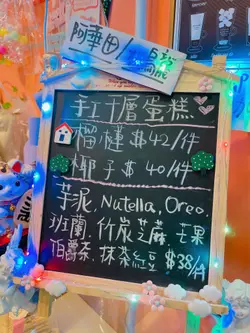 阿華田
手工千層蛋糕
榴槤 $42/件
椰子 $40/件
芋泥, Nutella, Oreo,
班蘭, 竹炭芝蔴, 芒果
伯爵茶, 抹茶紅豆 $38/件